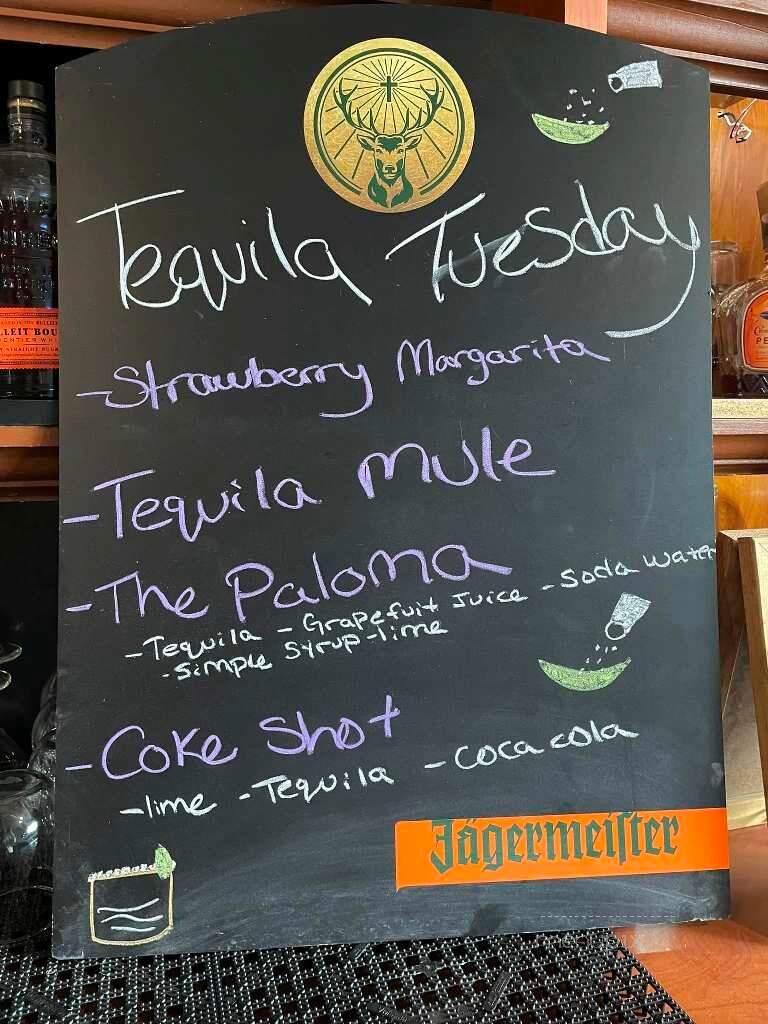 Tequila Tuesday
- Strawberry Margarita
- Tequila Mule
- The Paloma
- Tequila - Grapefuit Juice - Soda water
- Simple Syrup - lime
- Coke Shot
- lime - Tequila - coca cola
Jägermeiſter
LLEIT BOU
ONTIER WHI
PE